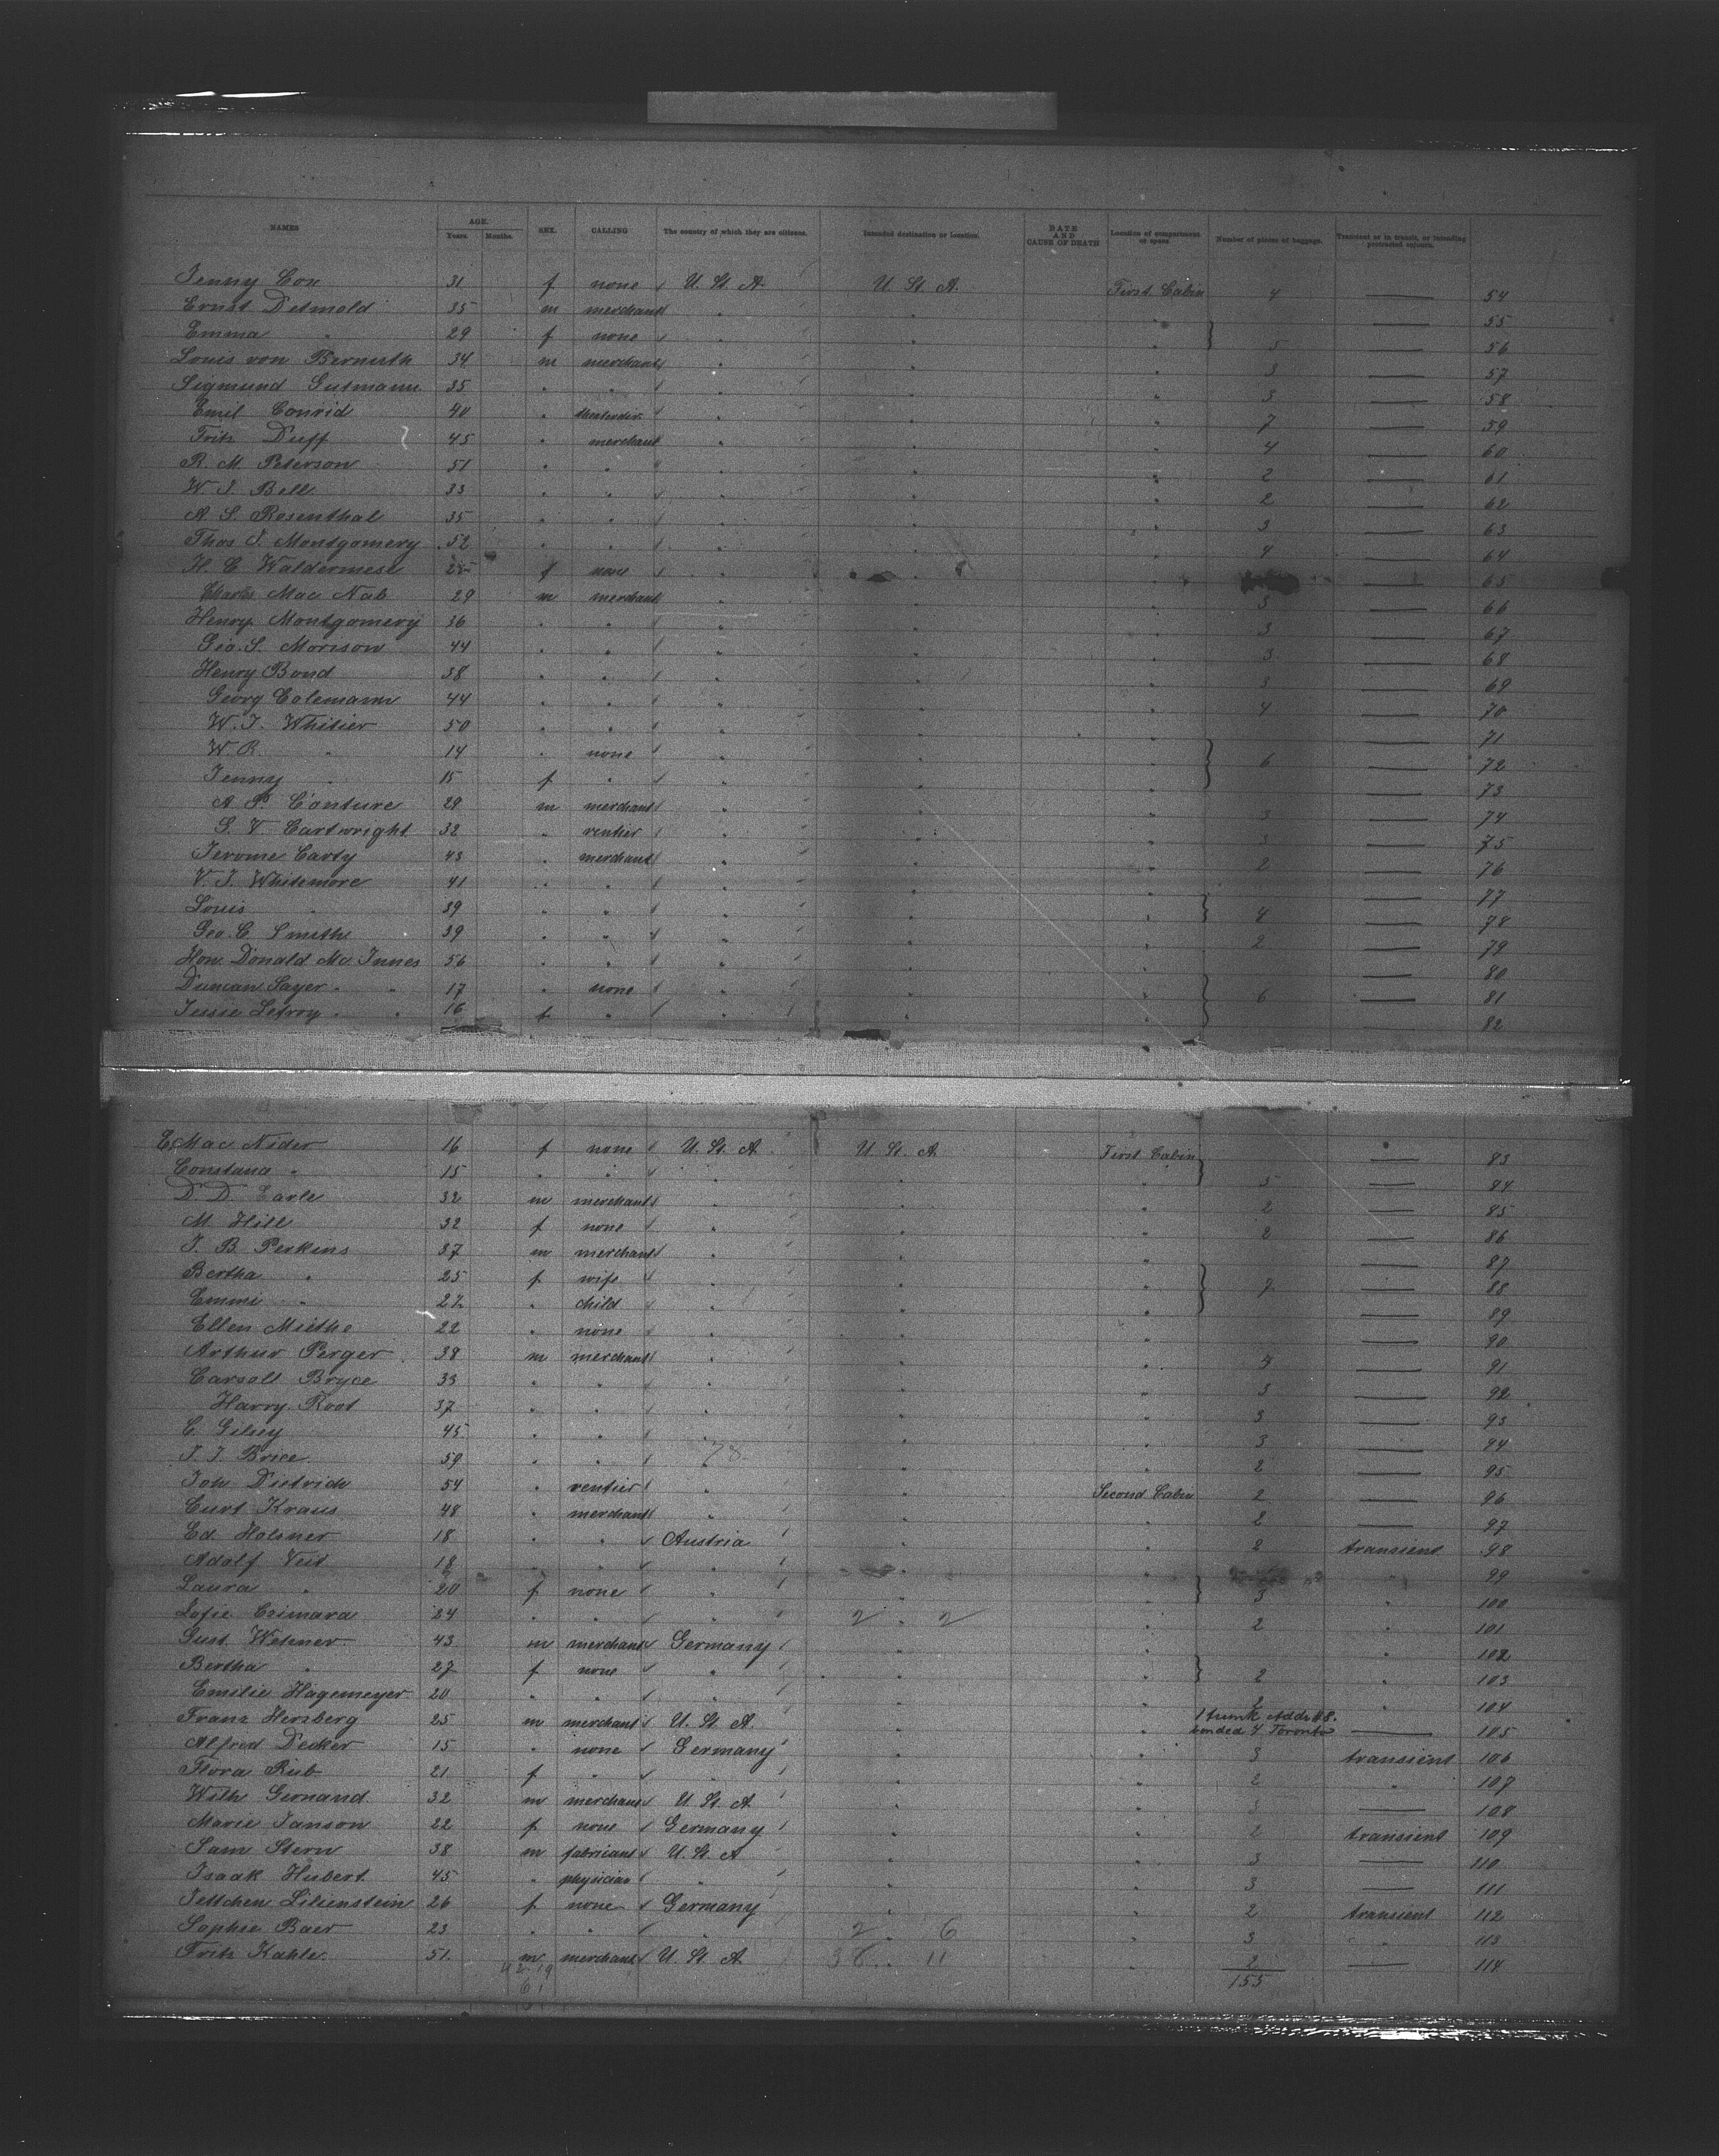 NAMES AGE. Years. Months. SEX. CALLING The country of which they are citizens. Intended destination or location. DATE AND CAUSE OF DEATH Location of compartment or space. Number of pieces of baggage. Transient or in transit, or intending protracted sojourn.
Jenny Cox 31 f none U. St. A. U. St. A. First Cabin 4 — 54
Ernst Detmold 35 m merchant " " " — 55
Emma " 29 f none " " " 5 — 56
Louis von Bernuth 34 m merchant " " " 3 — 57
Sigmund Gutmann 35 " " " " " 3 — 58
Emil Conrid 40 " " " " 7 — 59
Fritz Duff 45 " merchant " " " 4 — 60
R. M. Peterson 51 " " " " " 2 — 61
W. J. Bell 33 " " " " " 2 — 62
A. S. Rosenthal 35 " " " " " 3 — 63
Thos J. Montgomery 52 " " " " " 4 — 64
H. C. Waldermese 25 f none " " " — 65
Charles Mac Nab 29 m merchant " " " 3 — 66
Henry Montgomery 36 " " " " " 3 — 67
Geo. S. Morison 44 " " " " " 3 — 68
Henry Bond 38 " " " " " 3 — 69
Georg Colemann 44 " " " " " 4 — 70
W. J. Whitier 50 " " " " " — 71
W. R. " 14 " none " " " 6 — 72
Jenny " 15 f " " " " — 73
A. P. Conture 29 m merchant " " " 3 — 74
G. V. Cartwright 32 " rentier " " " 3 — 75
Jerome Carty 43 " merchant " " " 2 — 76
V. J. Whitemore 41 " " " " " — 77
Louis " 39 " " " " " 4 — 78
Geo. C. Smith 39 " " " " " 2 — 79
Hon. Donald Mc Innes 56 " " " " " — 80
Duncan Sayer " " 17 " none " " " 6 — 81
Jessie Lefroy " " 16 f " " " " — 82
E. Mac Nider 16 f none U. St. A. U. St. A. First Cabin — 83
Constana " 15 " " " " " 5 — 84
D. D. Earle 32 m merchant " " " 2 — 85
M. Hill 32 f none " " " 2 — 86
J. B. Perkins 37 m merchant " " " — 87
Bertha " 25 f wife " " " 7 — 88
Emmi " 27 " child " " " — 89
Ellen Miethe 22 " none " " " — 90
Arthur Perger 38 m merchant " " " 5 — 91
Carsoll Bryce 33 " " " " " 3 — 92
Harry Root 37 " " " " " 3 — 93
C. Gilsey 45 " " " " " 3 — 94
J. J. Brice 59 " " " 78 " " 2 — 95
Joh Dietrich 54 " rentier " " Second Cabin 2 — 96
Curt Kraus 48 " merchant " " " 2 — 97
Ed. Holsner 18 " " Austria " " 2 transient 98
Adolf Veit 18 " " " " " " 99
Laura " 20 f none " " " 3 " 100
Sofie Czimara 24 " " " 2 " 2 " 2 " 101
Gust. Wetzner 43 m merchant Germany " " " 102
Bertha " 27 f none " " " 2 " 103
Emilie Hagemeyer 20 " " " " " 2 " 104
Franz Herzberg 25 m merchant U. St. A. " " 1 trunk Toronto — 105
Alfred Decker 15 " none Germany " " 3 transient 106
Flora Rüb 21 f " " " " 2 " 107
Wilh Gernand 32 m merchant U. St. A " " 3 — 108
Marie Janson 22 f none Germany " " 2 transient 109
Sam Stern 38 m fabricant U. St. A " " 3 — 110
Isaak Hubert 45 " physician " " " 3 — 111
Jettchen Lilienstein 26 f none Germany " " 2 transient 112
Sophie Baer 23 " " " 2 " 6 " 3 " 113
Fritz Kahle 51 m merchant U. St. A 38 " 11 " 2 — 114
42 19 155
61